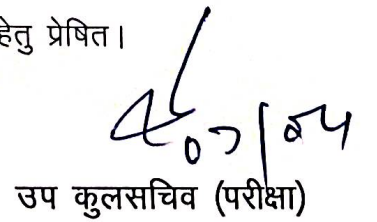 हेतु प्रेषित।
उप कुलसचिव (परीक्षा)